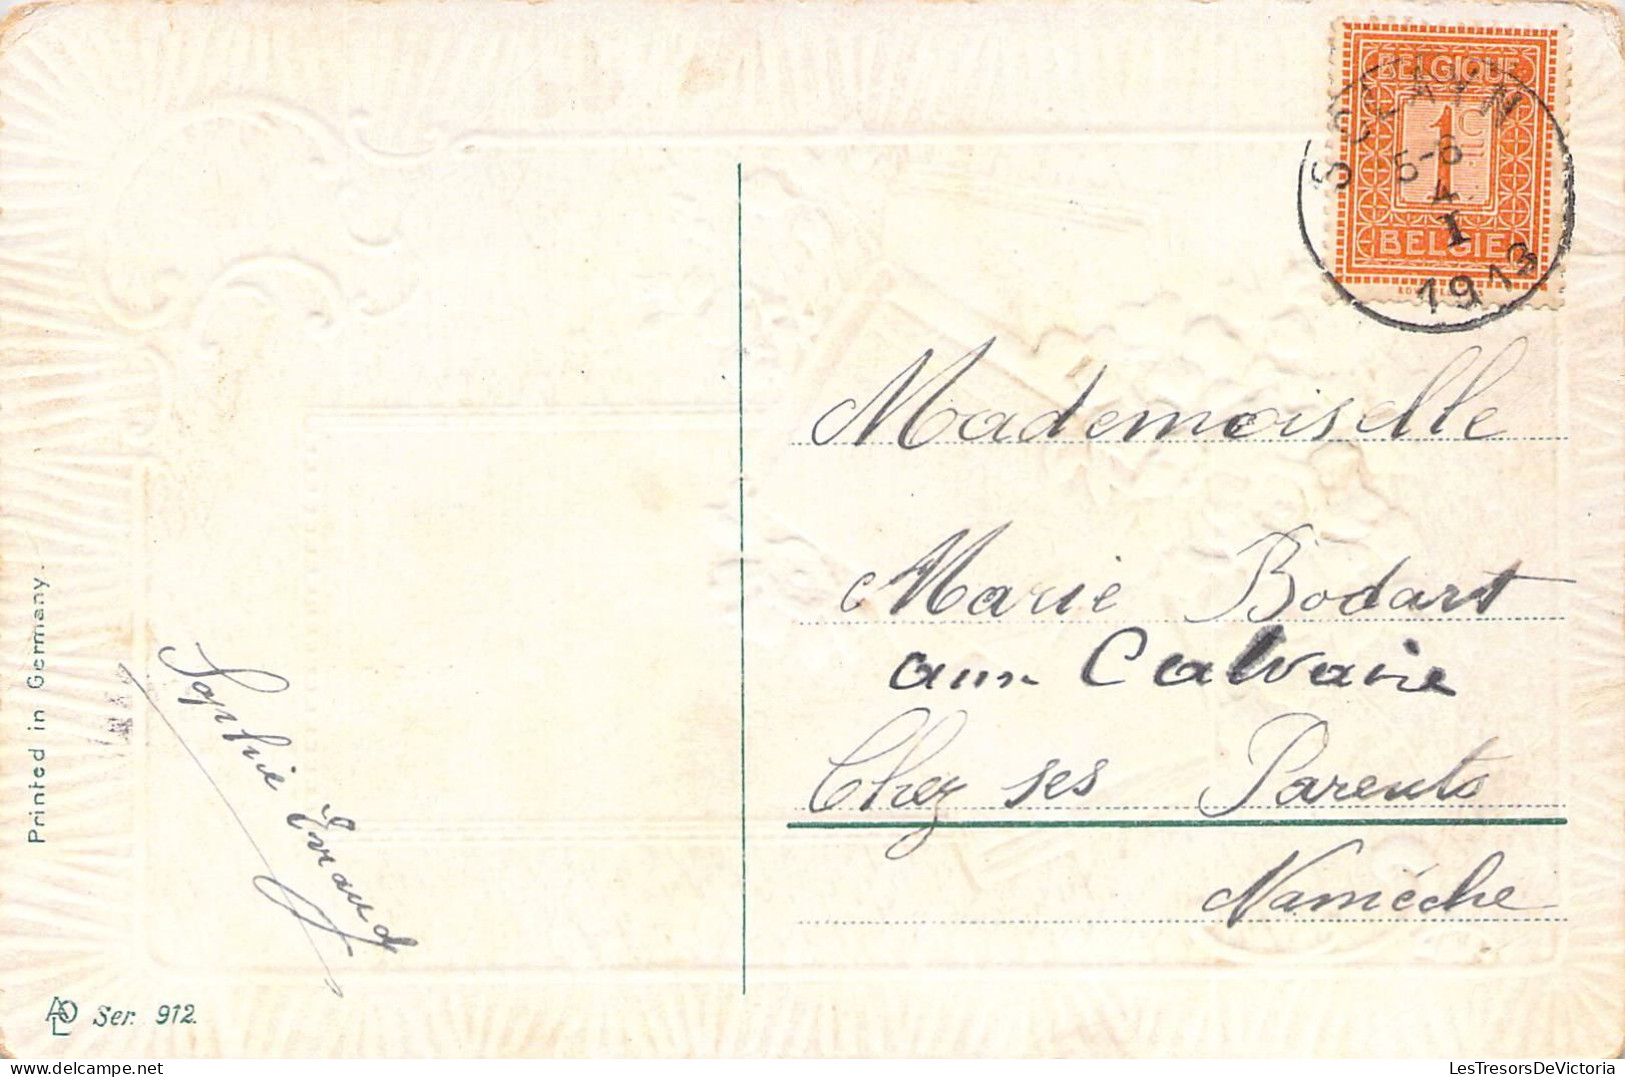 BELGIQUE
1C
BELGIE
SCLAYN
5-6
4
I
1913
Mademoiselle
Marie Bodart
aux Calvaire
Chez ses Parents
Namêche
Sophie Evrard
Printed in Germany.
Ser. 912.
LesTresorsDeVictoria